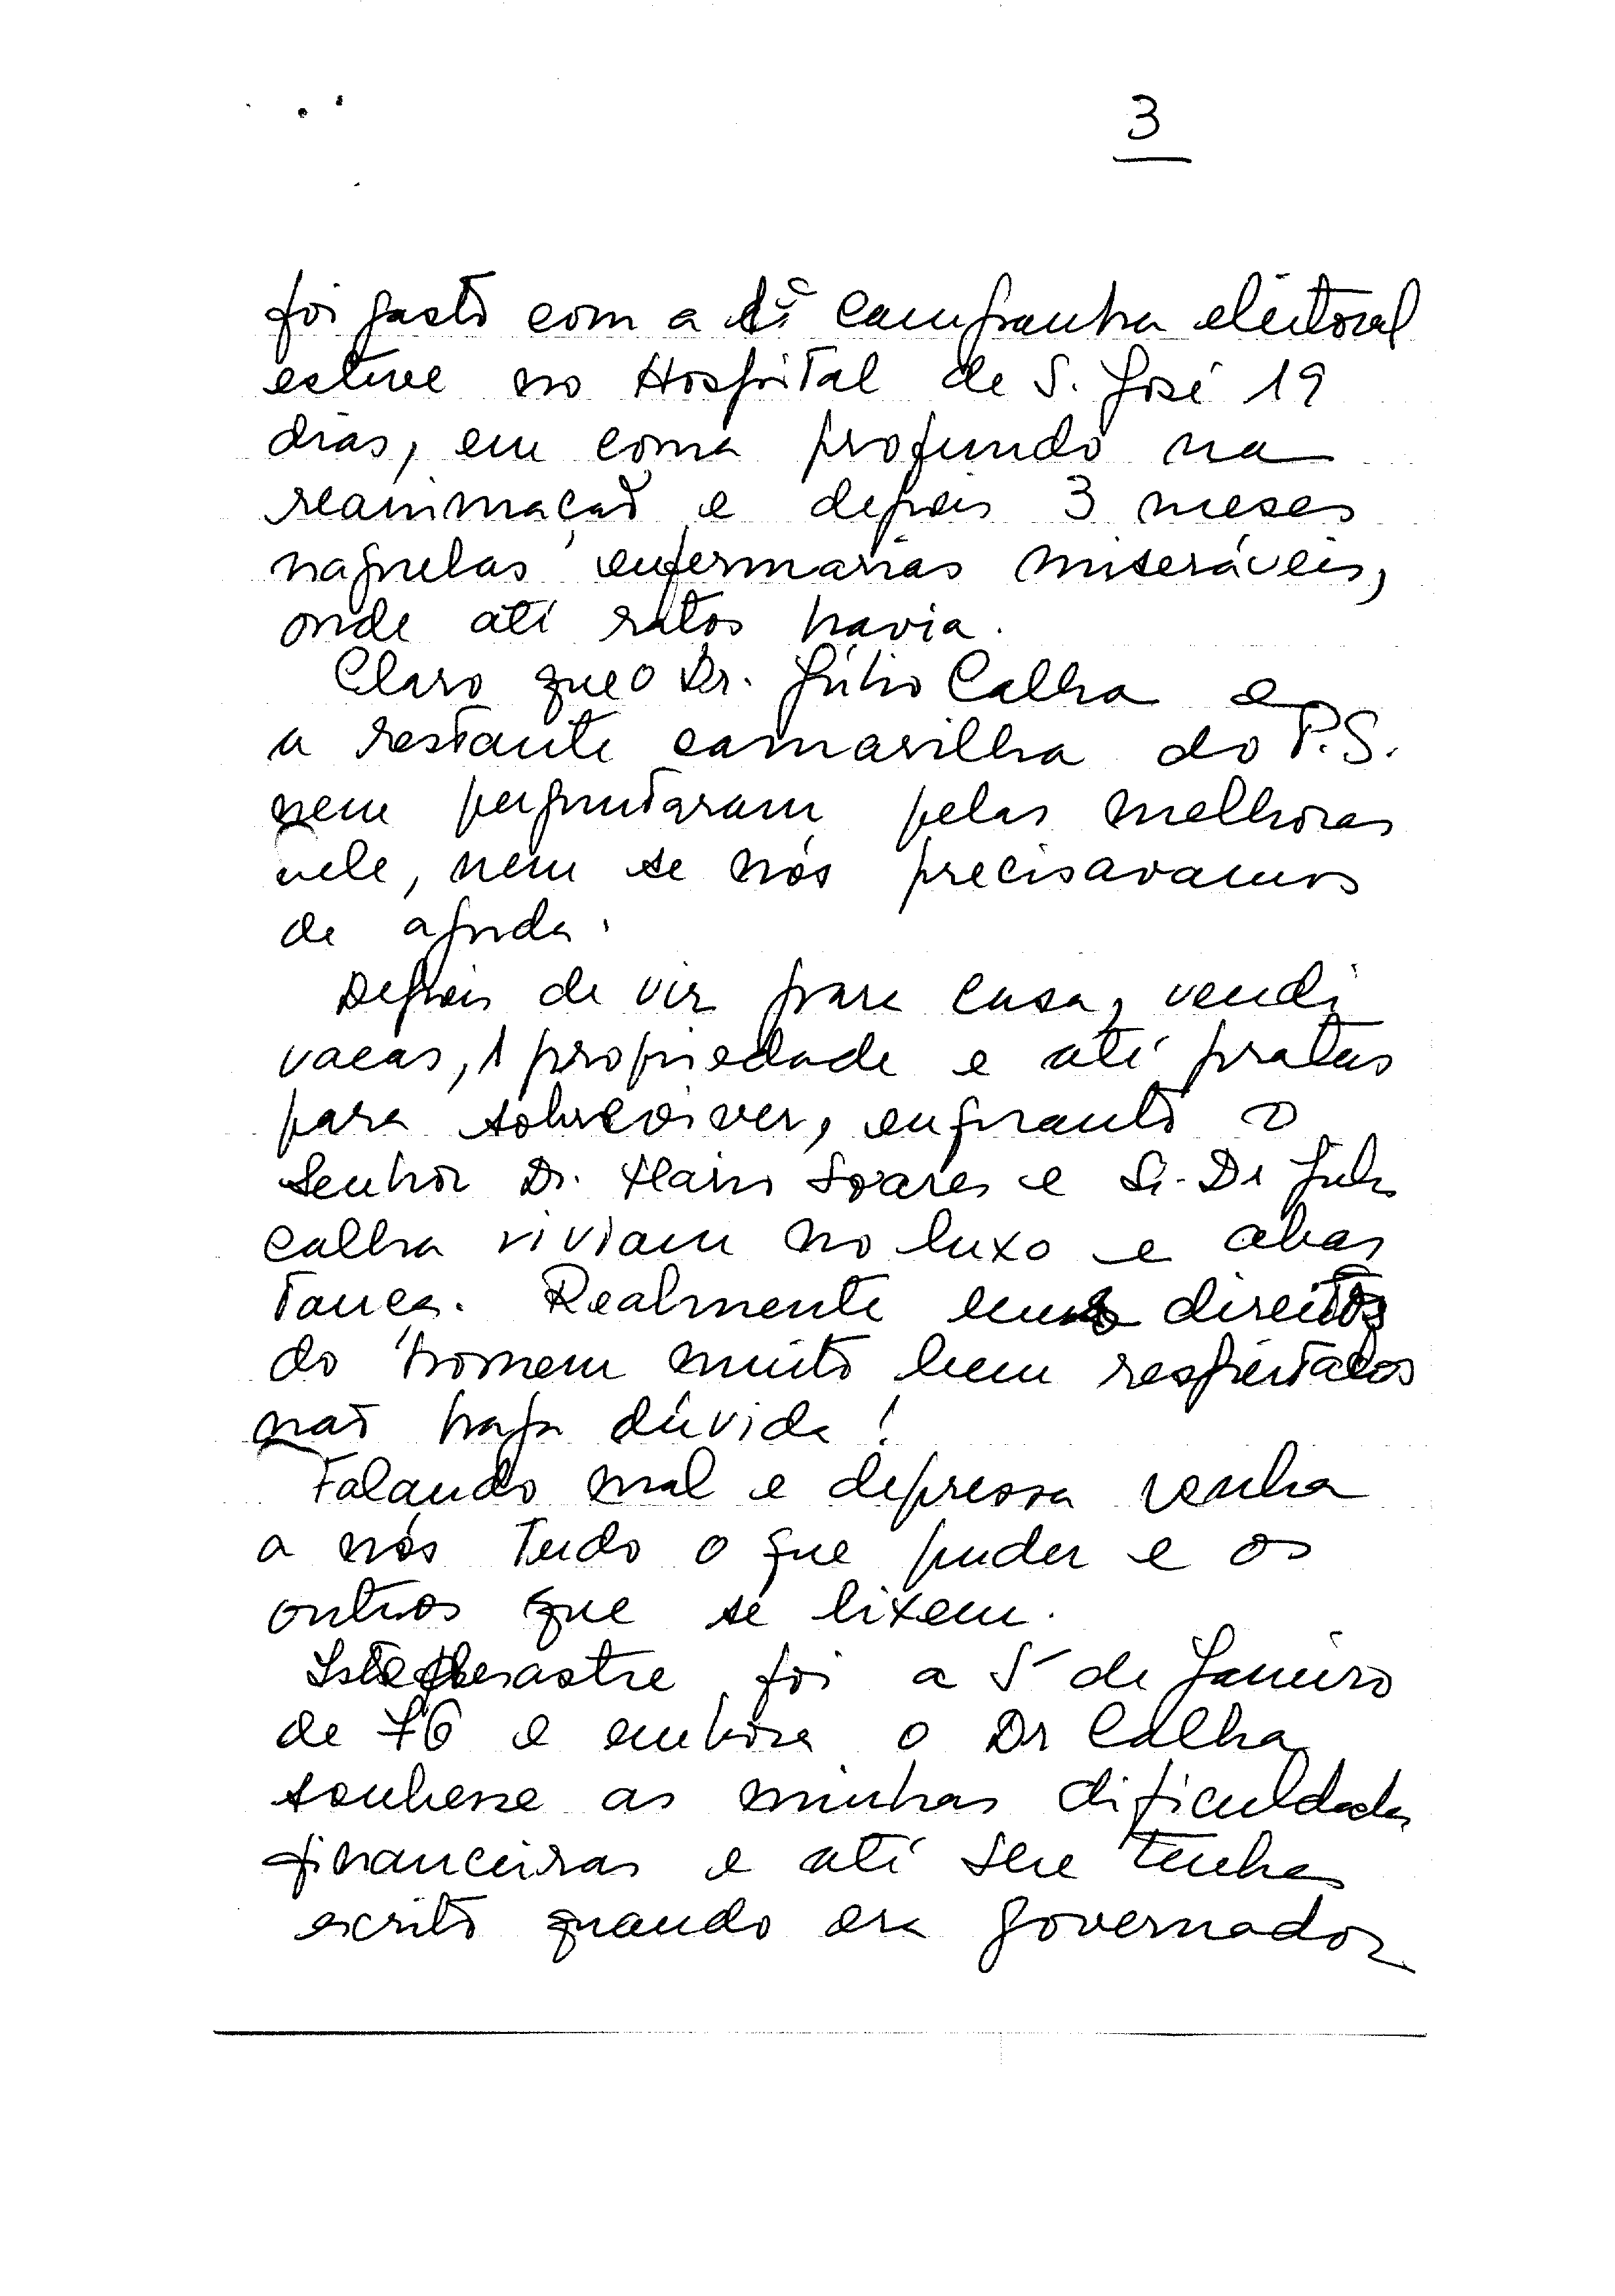 3
foi gasto com a 1ª campanha eleitoral
esteve no Hospital de S. José 19
dias, em coma profundo na
reanimação e depois 3 meses
naquelas enfermarias miseráveis,
onde até ratos havia.
Claro que o Dr. Júlio Calha e
a restante camarilha do P.S.
nem perguntaram pelas melhoras
dele, nem se nós precisavamos
de ajuda.
Depois de vir para casa, vendi
vacas, 1 propriedade e até pratas
para sobreviver, enquanto o
Senhor Dr. Mário Soares e Sr. Dr Julio
Calha viviam no luxo e abas
tança. Realmente direitos
do homem muito bem respeitados
não haja dúvida!
Falando mal e depressa venha
a nós tudo o que puder e os
outros que se lixem.
Este desastre foi a 5 de Janeiro
de 76 e embora o Dr Calha
soubesse as minhas dificuldades
financeiras e até lhe tenha
escrito quando era governador